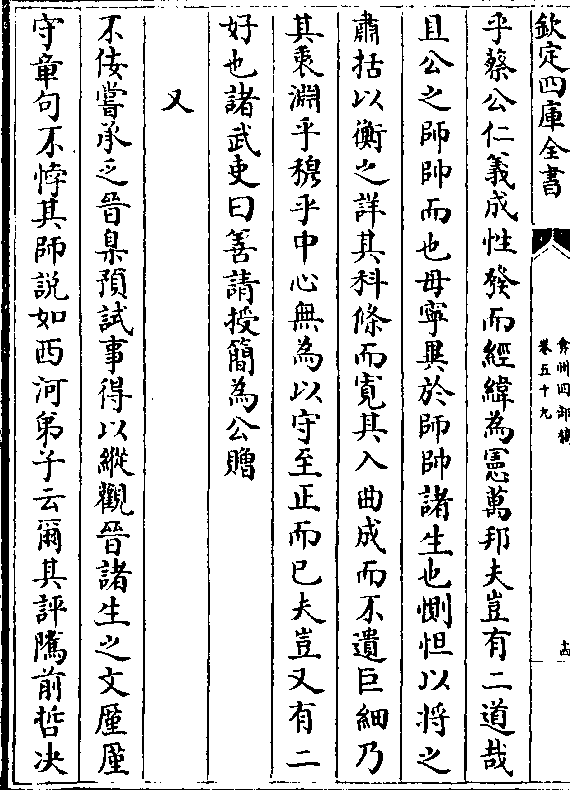 欽定四庫全書
弇州四部稿
卷五十九
十四
乎蔡公仁義成性發而經緯為憲萬邦夫豈有二道哉
且公之師帥而也毋寧異於師帥諸生也惻怛以將之
肅括以衡之詳其科條而寛其入曲成而不遺巨細乃
其秉淵乎穆乎中心無為以守至正而已夫豈又有二
好也諸武吏曰善請授簡為公贈
又
不佞嘗承乏晉臬預試事得以縱觀晉諸生之文厪厪
守章句不悖其師説如西河弟子云爾其評隲前哲决